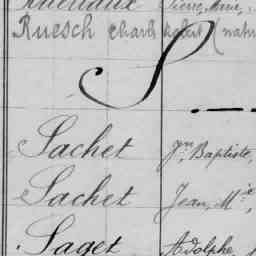 Ruesch Charles Robert (natu
S
Sachet Jn Baptiste,
Sachet Jean, Mie,
Saget Adolphe